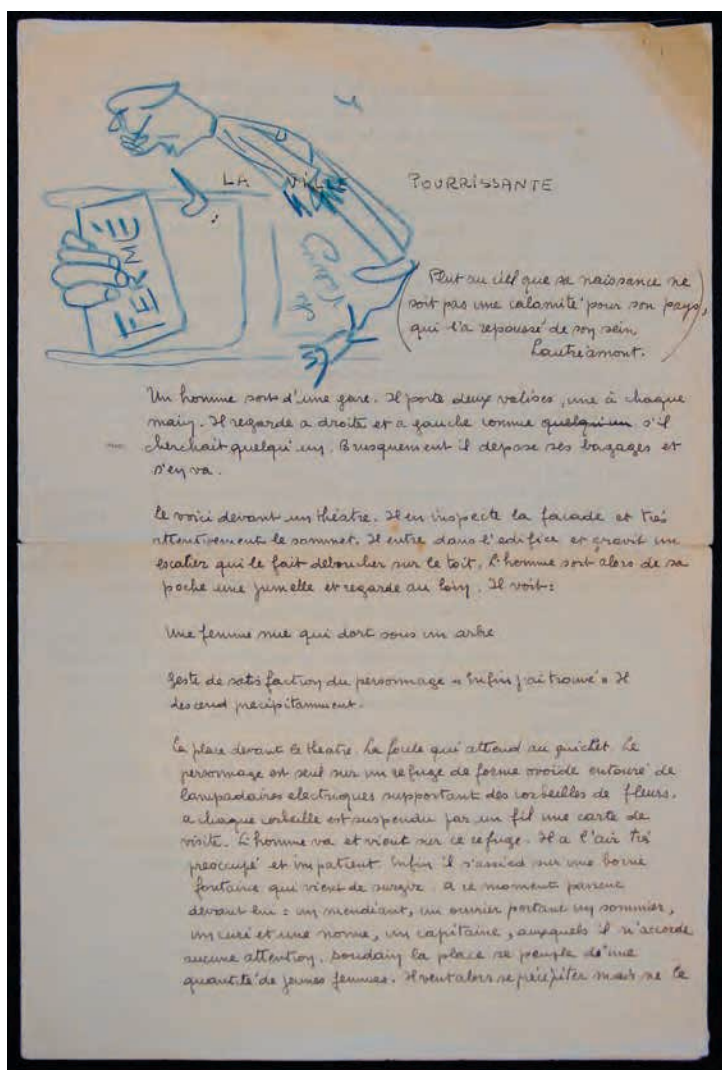 LA VILLE POURRISSANTE
FERMÉ
(Plut au ciel que sa naissance ne
soit pas une calamité pour son pays,
qui l'a repoussé de son sein
Lautréamont.)
Un homme sort d'une gare. Il porte deux valises, une à chaque
main. Il regarde a droite et a gauche comme quelqu'un s'il
cherchait quelqu'un. Brusquement il depose ses bagages et
s'en va.
Le voici devant un théatre. Il en inspecte la facade et très
attentivement le sommet. Il entre dans l'edifice et gravit un
escalier qui le fait deboucher sur le toit. L'homme sort alors de sa
poche une jumelle et regarde au loin. Il voit :
Une femme nue qui dort sous un arbre
Geste de satisfaction du personnage « Enfin j'ai trouvé » Il
descend precipitamment.
La place devant le theatre. La foule qui attend au guichet. Le
personnage est seul sur un refuge de forme ovoïde entouré de
lampadaires electriques supportant des corbeilles de fleurs.
a chaque corbeille est suspendu par un fil une carte de
visite. L'homme va et vient sur ce refuge. Il a l'air très
préoccupé et impatient. Enfin il s'assied sur une borne
fontaine qui vient de surgir. A ce moment passent
devant lui : un mendiant, un ouvrier portant un sommier,
un curé et une nonne, un capitaine, auxquels il n'accorde
aucune attention. Soudain la place se peuple d'une
quantité de jeunes femmes. Il veut alors se précipiter mais ne le